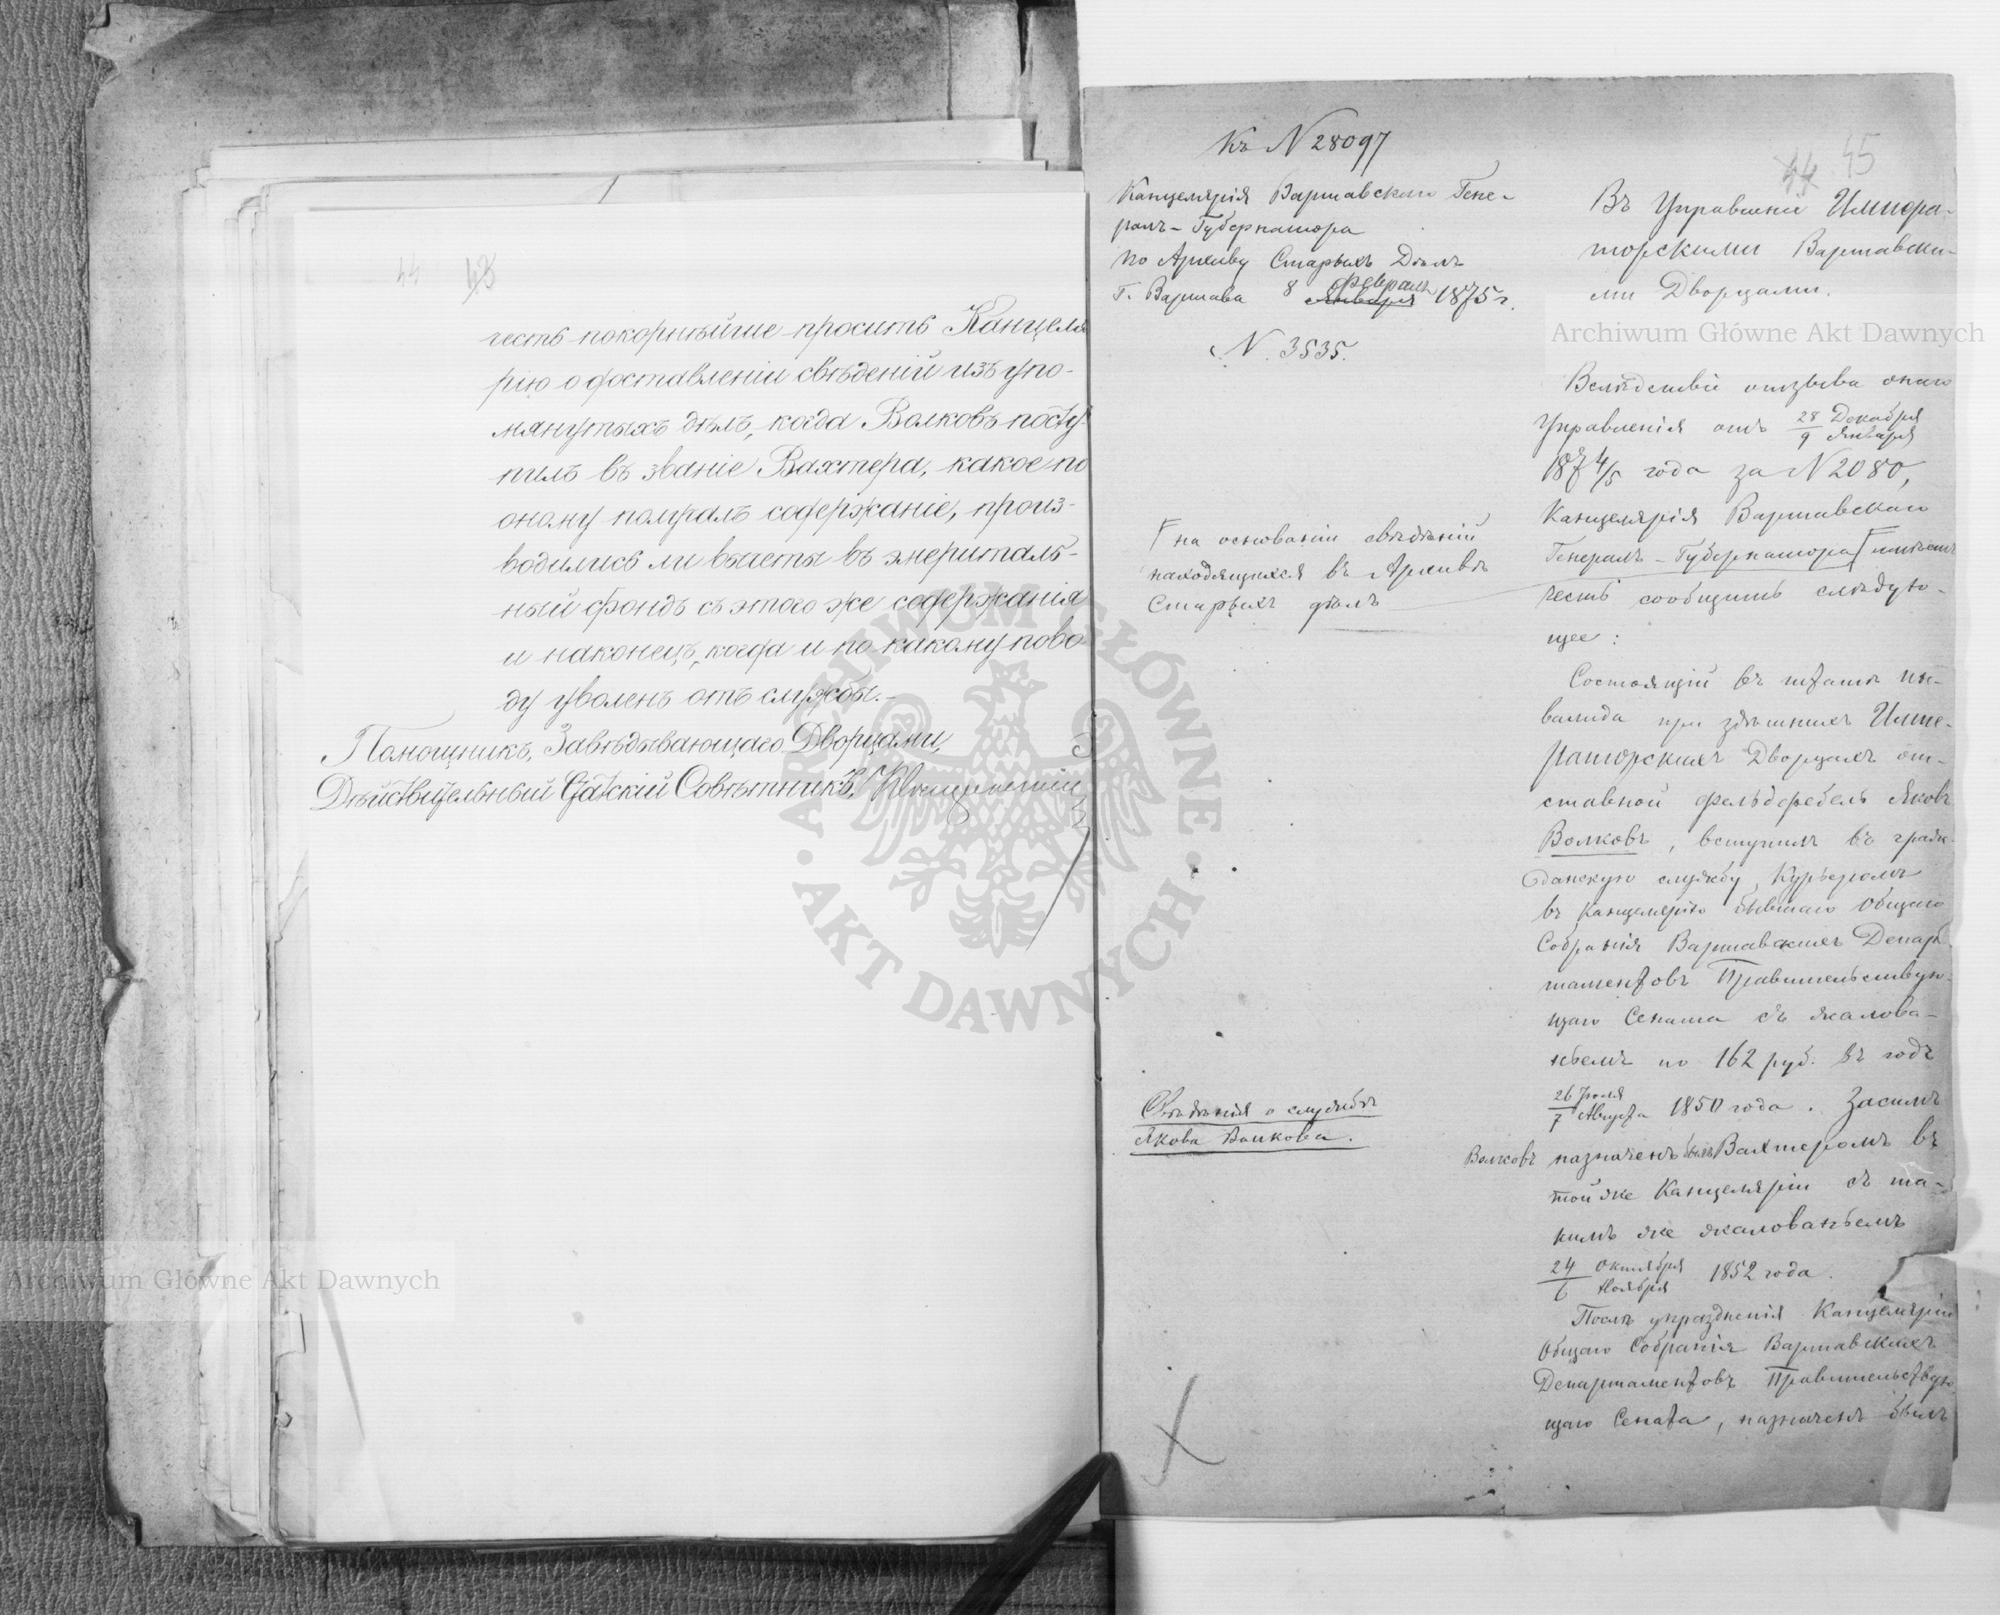 44 43
честь покорнѣйше просить Канцеля
рію о доставленіи свѣдений изъ упо-
мянутыхъ дѣлъ, когда Волковъ посту-
пилъ въ званіе Вахтера, какое по
оному получалъ содержаніе, произ-
водились ли вычеты въ эмериталь-
ный фондъ съ этого же содержанія
и наконецъ, когда и по какому пово
ду уволенъ отъ службы.-
Помощникъ, Завѣдывающаго Дворцами,
Дѣйствительный Статскій Совѣтникъ,
Къ N 28097
44 45
Канцелярія Варшавскаго Гене-
ралъ-Губернатора
по Архиву Старыхъ Дѣлъ
Г. Варшава 8 Января Февраля 1875 г.
N. 3535.
Въ Управленіе Импера-
торскими Варшавски-
ми Дворцами.
Вслѣдствіе отзыва онаго
Управленія отъ 28/9 Декабря/Января
1874/5 года за N 2080,
Канцелярія Варшавскаго
Генералъ-Губернатора Г имѣетъ
честь сообщить слѣдую-
щее:
Г на основаніи свѣдѣній
находящихся въ Архивѣ
Старыхъ дѣлъ
Состоящій въ штатѣ ин-
валида при здѣшнихъ Импе-
раторскихъ Дворцахъ от-
ставной фельдфебель Яковъ
Волковъ, вступилъ въ граж-
данскую службу, Курьеромъ
въ Канцелярію бывшаго Общаго
Собранія Варшавскихъ Депар-
таментовъ Правительствую-
щаго Сената съ жалова-
ньемъ по 162 руб. въ годъ
26/7 Іюля/Августа 1850 года. Засимъ
Волковъ назначенъ былъ Вахтеромъ въ
той же Канцеляріи съ та-
кимъ же жалованьемъ
24/6 Октября/Ноября 1852 года.
Свѣдѣнія о службѣ
Якова Волкова.
Послѣ упраздненія Канцеляріи
Общаго Собранія Варшавскихъ
Департаментовъ Правительствую
щаго Сената, назначенъ былъ
Archiwum Główne Akt Dawnych
Archiwum Główne Akt Dawnych
ARCHIWUM GŁÓWNE · AKT DAWNYCH ·